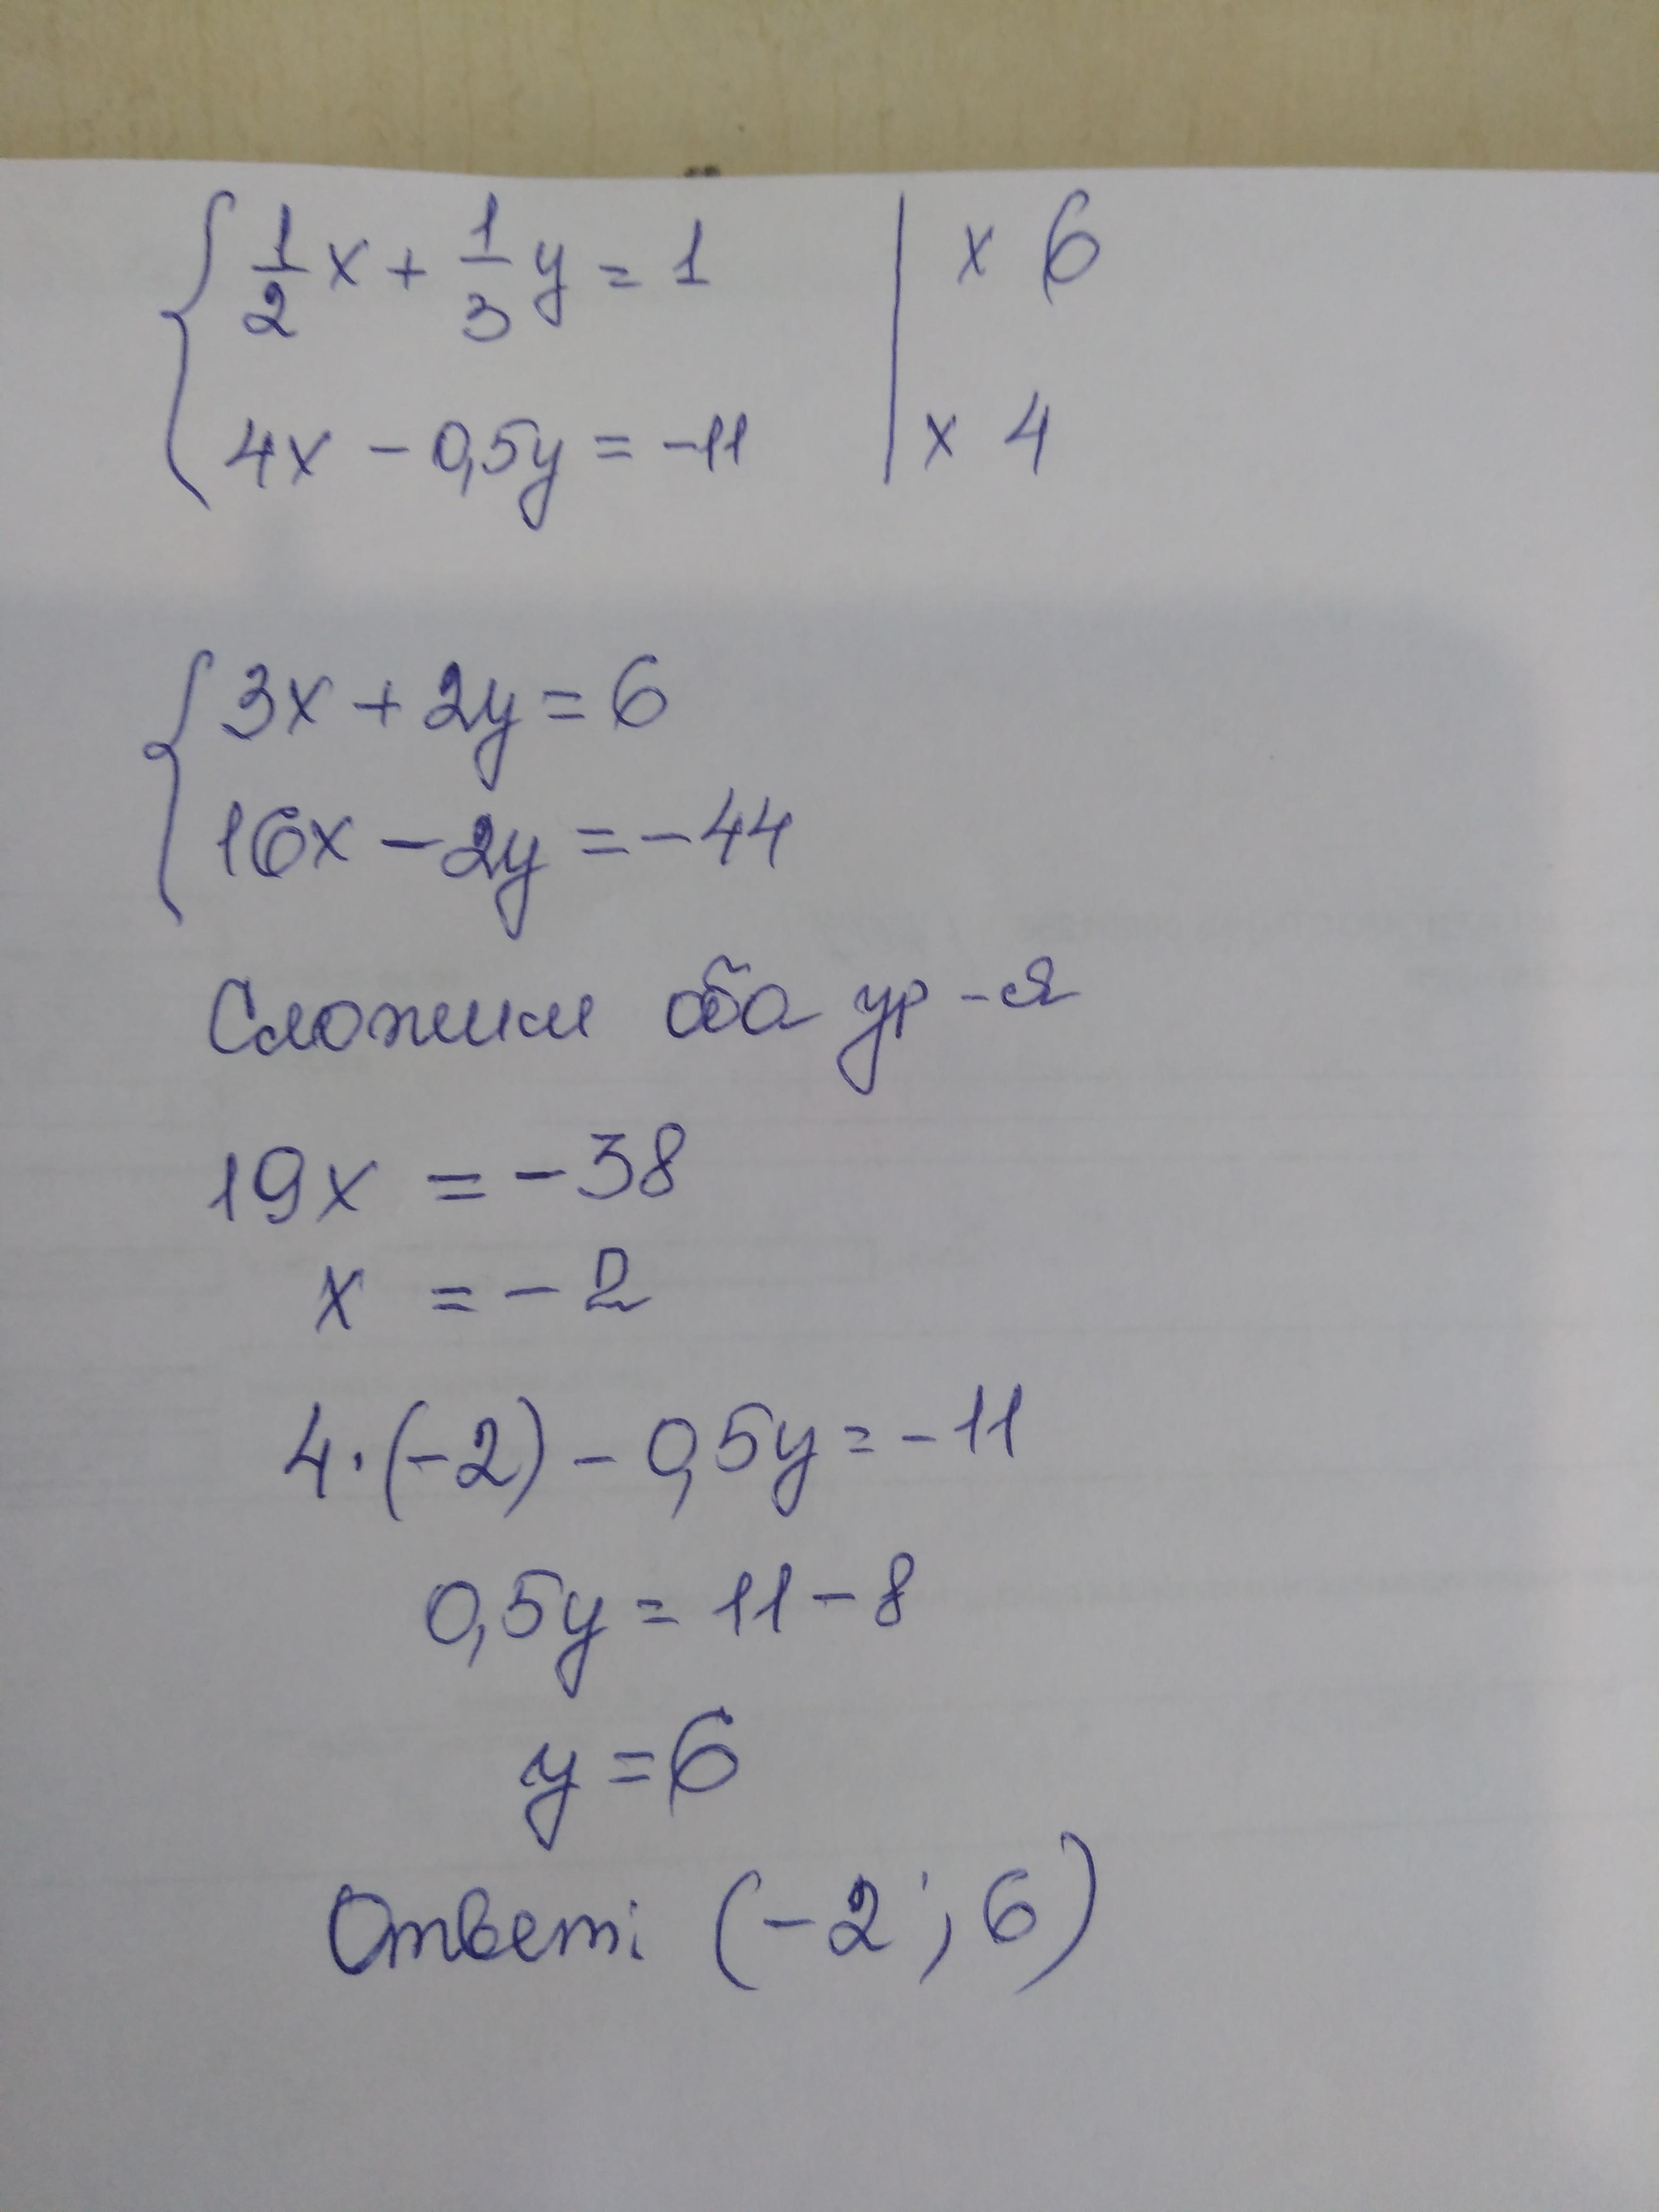 { 1/2 x + 1/3 y = 1 | x 6
4x - 0,5y = -11 | x 4
{ 3x + 2y = 6
16x - 2y = -44
Сложим оба ур-я
19x = -38
x = -2
4·(-2) - 0,5y = -11
0,5y = 11 - 8
y = 6
Ответ: (-2; 6)